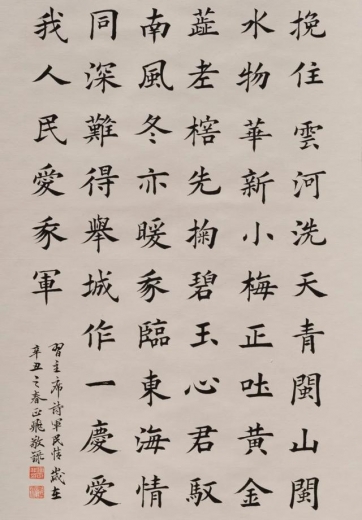 挽住雲河洗天青閩山閩
水物華新小梅正吐黃金
蕋老榕先掬碧玉心君馭
南風冬亦暖我臨東海情
同深難得舉城作一慶愛
我人民愛我軍
習主席詩軍民情歲在
辛丑之春正敬錄